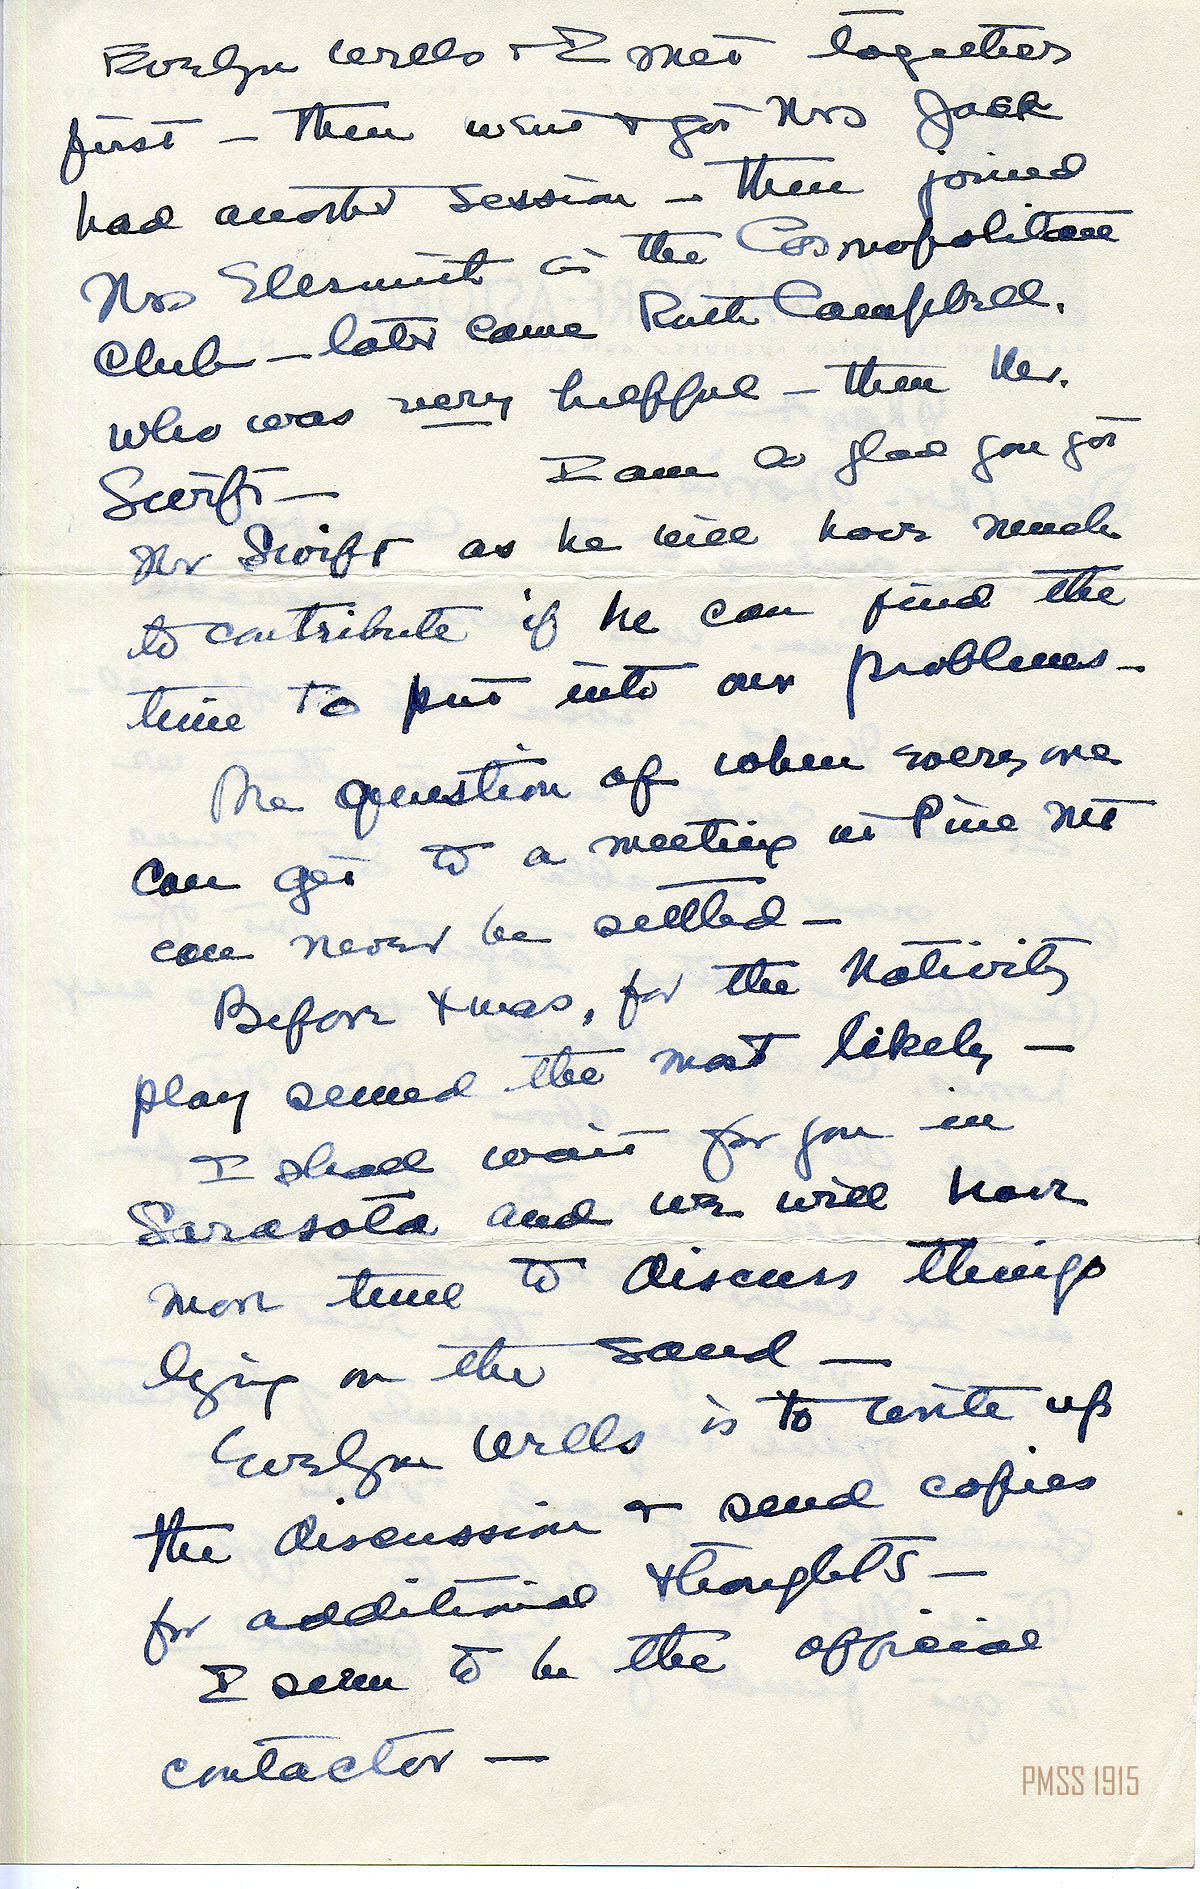 Evelyn Wells & I met together
first — then went & got Mrs Jack
had another session — then joined
Mrs in the Cosmopolitan
Club — later came Ruth Campbell.
who was very helpful — then Mr.
Swift — I am so glad you got
Mr Swift as he will have much
to contribute if he can find the
time to put into our problems —
The question of when every one
can get to a meeting at Pine Mt
can never be settled —
Before Xmas, for the Nativity
play seemed the most likely —
I shall wait for you in
Sarasota and we will have
more time to discuss things
lying on the sand —
Evelyn Wells is to write up
the discussion & send copies
for additional thoughts —
I seem to be the official
contactor —
PMSS 1915